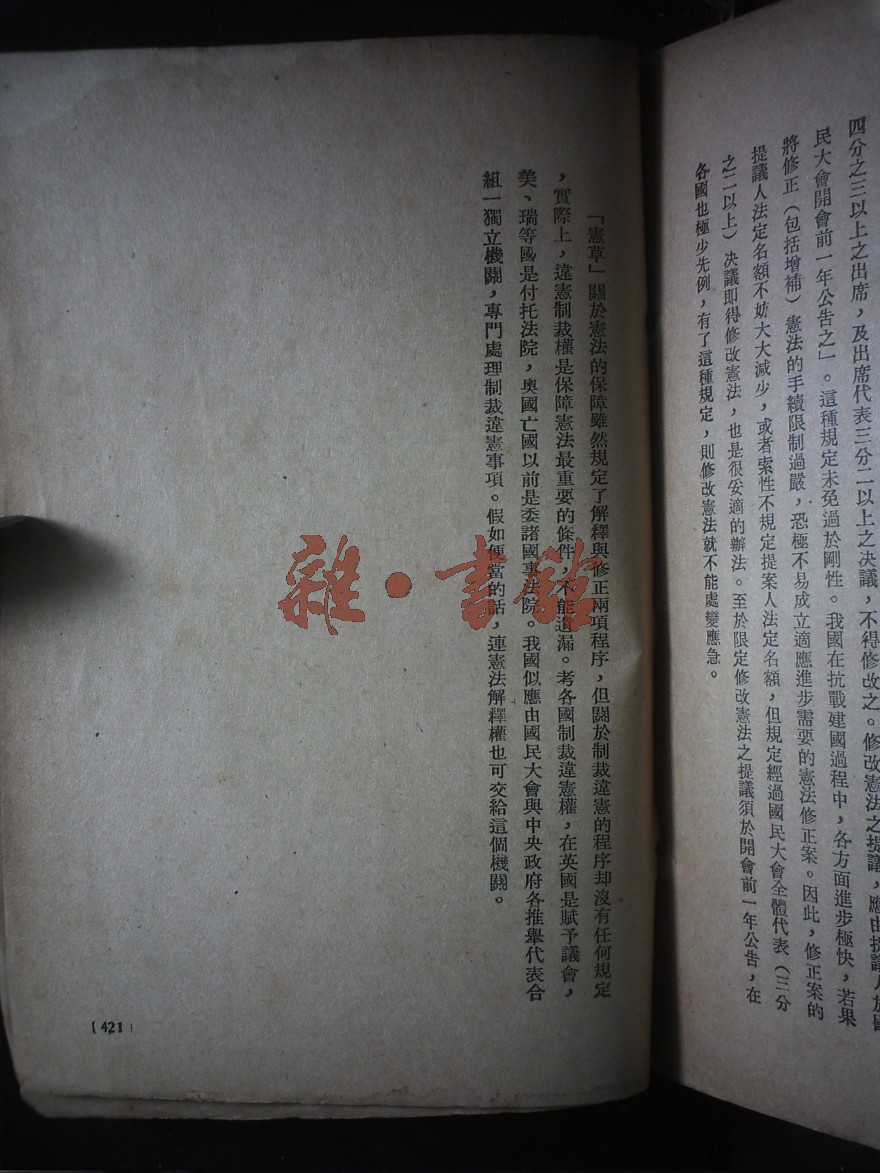 四分之三以上之出席，及出席代表三分二以上之决議，不得修改之。修改憲法之提議，應由提議人於國
民大會開會前一年公告之」。這種規定未免過於剛性。我國在抗戰建國過程中，各方面進步極快，若果
將修正（包括增補）憲法的手續限制過嚴，恐極不易成立適應進步需要的憲法修正案。因此，修正案的
提議人法定名額不妨大大減少，或者索性不規定提案人法定名額，但規定經過國民大會全體代表（三分
之二以上）决議即得修改憲法，也是很妥適的辦法。至於限定修改憲法之提議須於開會前一年公告，在
各國也極少先例，有了這種規定，則修改憲法就不能處變應急。
「憲草」關於憲法的保障雖然規定了解釋與修正兩項程序，但關於制裁違憲的程序却沒有任何規定
，實際上，違憲制裁權是保障憲法最重要的條件，不能遺漏。考各國制裁違憲權，在英國是賦予議會，
美、瑞等國是付托法院，奧國亡國以前是委諸國事法院。我國似應由國民大會與中央政府各推舉代表合
組一獨立機關，專門處理制裁違憲事項。假如便當的話，連憲法解釋權也可交給這個機關。
雜·書館
[421]